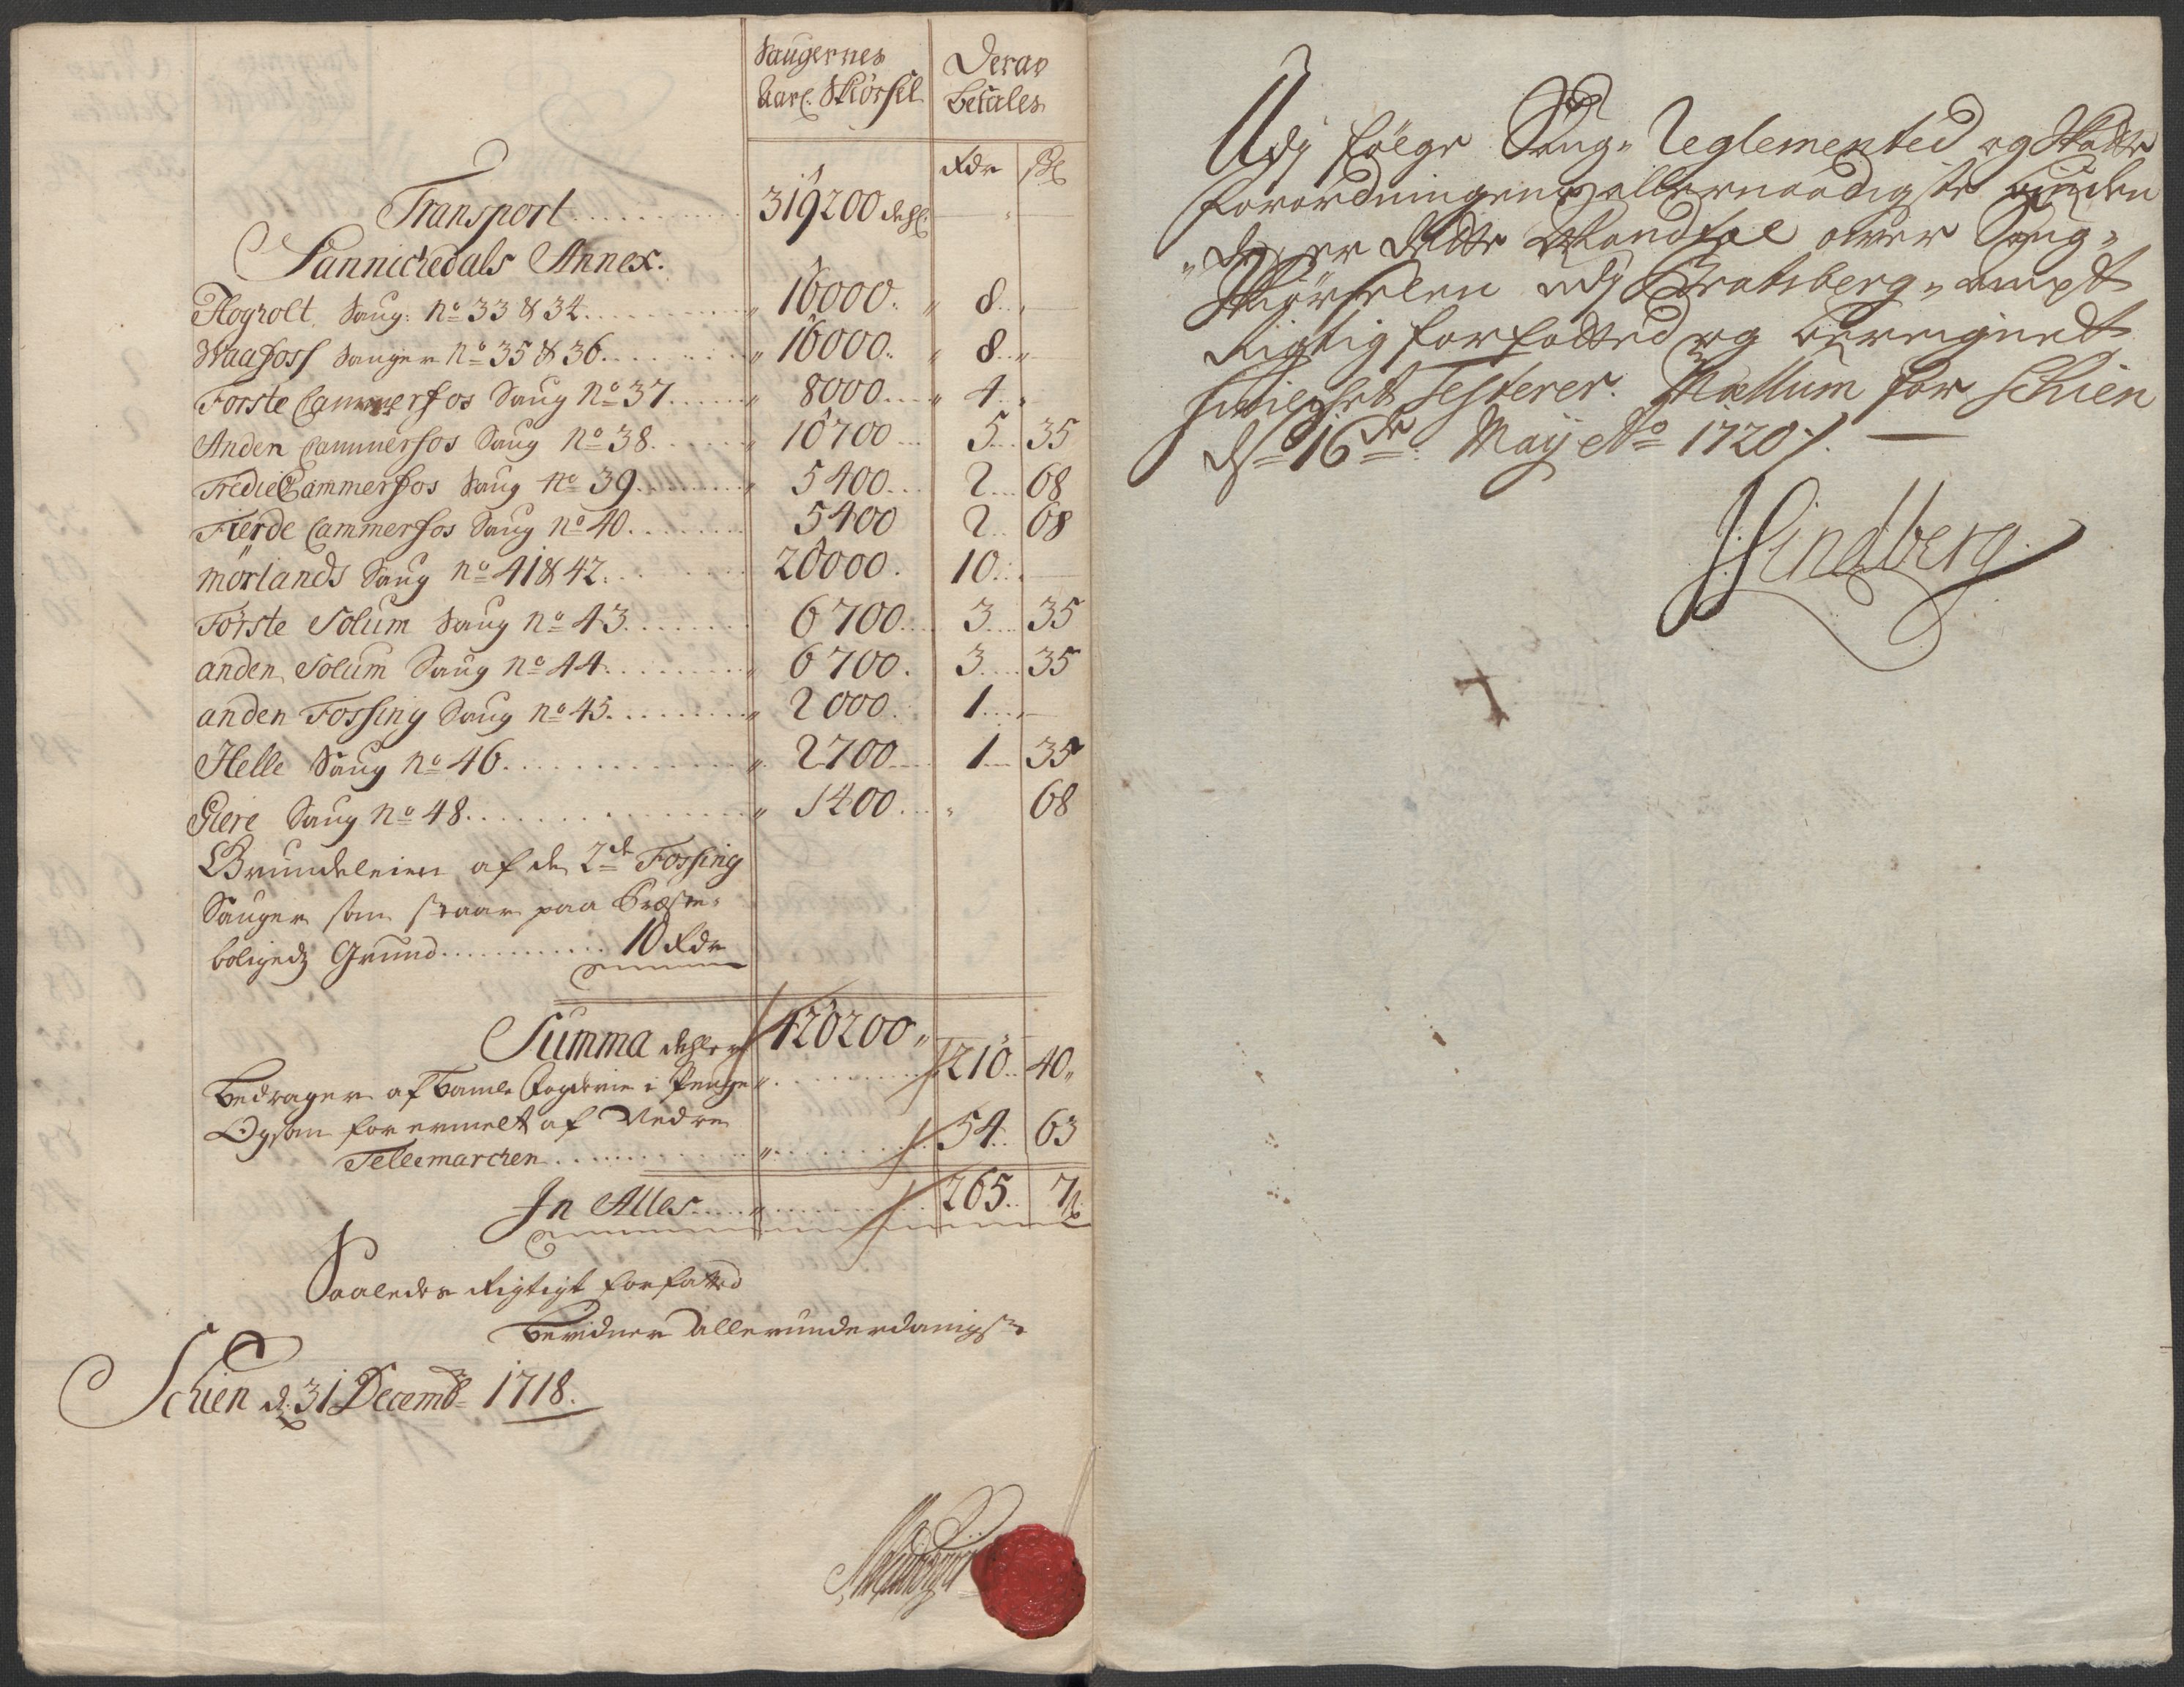 Saugernes Aarl. Skiørsel | Derav betales
Rdr | ß
Transport ........... 319200 dehl.
Sannickedals Annex.
Hogholt Saug: No 33 & 34 ........ 16000. 8
Waafoss Sauger No 35 & 36 ........ 16000. 8
Forste Cammerfos Saug No 37 ..... 8000 .... 4
Anden Cammerfos Saug No 38 ..... 10700 ... 5 .. 35
Tredie Cammerfos Saug No 39 ....... 5400 ... 2 ... 68
Fierde Cammerfos Saug no 40 ....... 5400 2 .. 68
mörlands Saug no 41 & 42 ........ 20000. 10
Förste Solum Saug no 43 ........ 6700 ... 3 ... 35
anden Solum Saug no 44 ........ 6700. 3 ... 35
anden Fossing Saug no 45 ......... 2000 1
Helle Saug no 46 ............. 2700 ... 1 ... 35
Giere Saug No 48 .............. 1400 ... 68
Grundeleien af de 2de Fossing
Sauger som staar paa Præste-
boligeds Grund ........... 10 Rdr
Summa dehler 420200
Bedrager af Bamle Fogderie i Penge .......... 210 .. 40
Ogsaa for ermelt af Nedre
Tellemarchen ............ 54 .. 63
In Alles ............ 265 .. 7 ß
Saaledes Rigtigt forfatted
Bevidner Allerunderdanigst
Schien d. 31 Decemb 1718.
Udj følge Saug-Reglemented og Skatte
forordningens allernaadigste
er dette Mandtal over Saug-
Skiørselen udj Bratsberg-ampt
Rigtig forfatted og beregnet
Testerer. Mællum for Schien
d. 16de Maij Ao 1720 /.
Lindberg